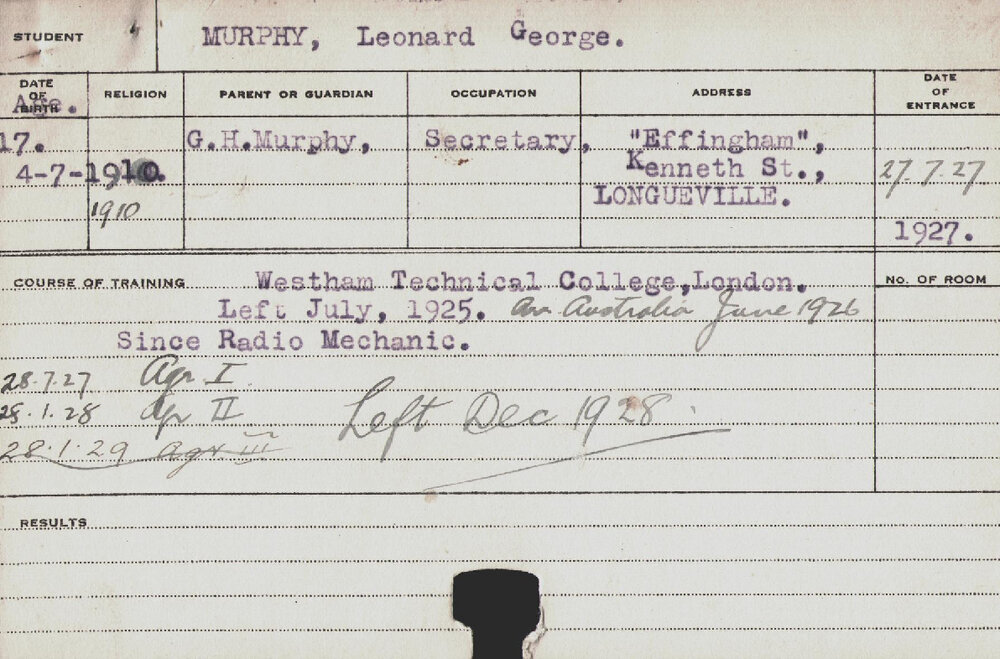 STUDENT MURPHY, Leonard George.
DATE OF BIRTH RELIGION PARENT OR GUARDIAN OCCUPATION ADDRESS DATE OF ENTRANCE
Age.
17. G.H.Murphy, Secretary, "Effingham",
4-7-1910. Kenneth St., 27.7.27
1910 LONGUEVILLE.
1927.
COURSE OF TRAINING Westham Technical College,London. No. OF ROOM
Left July, 1925. Arr Australia June 1926
Since Radio Mechanic.
28.7.27 Agr I
28.1.28 Agr II Left Dec 1928.
28.1.29 Agr III
RESULTS